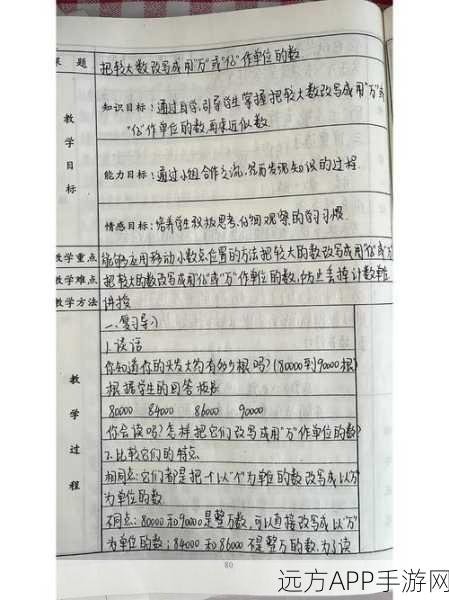 课 题 把较大数改写成用"万"或"亿"作单位的数
教学目标
知识目标：通过自学,引导学生掌握把较大数改写成用"万"或
"亿"作单位的数,再求近似数.
能力目标：通过小组合作交流,
发现知识的过程.
情感目标：培养学生积极思考,仔细观察的学习习惯.
教学重点 能够应用移动小数点位置的方法把较大的数改写成用"亿"或"万"
教学难点 把较大的数改写成用"亿"或"万"作单位的数,防止丢掉计数单位
教学方法 讲授
教学过程
一.复习导入
1.谈话
你知道你的头发大约有多少根吗?(80000到90000根)
根据学生的回答板书
80000 84000 86000 90000
你会读吗?怎样把它们改写成用"万"作单位的数?
2.比较它们的特点
相同点:它们都是把一个以"个"为单位的数改写成以"万"
为单位的数.
不同点:80000和90000是整万数,可以直接改写成以"万"
为单位的数;84000和86000不是整万的数,为了读
80
远方APP手游网